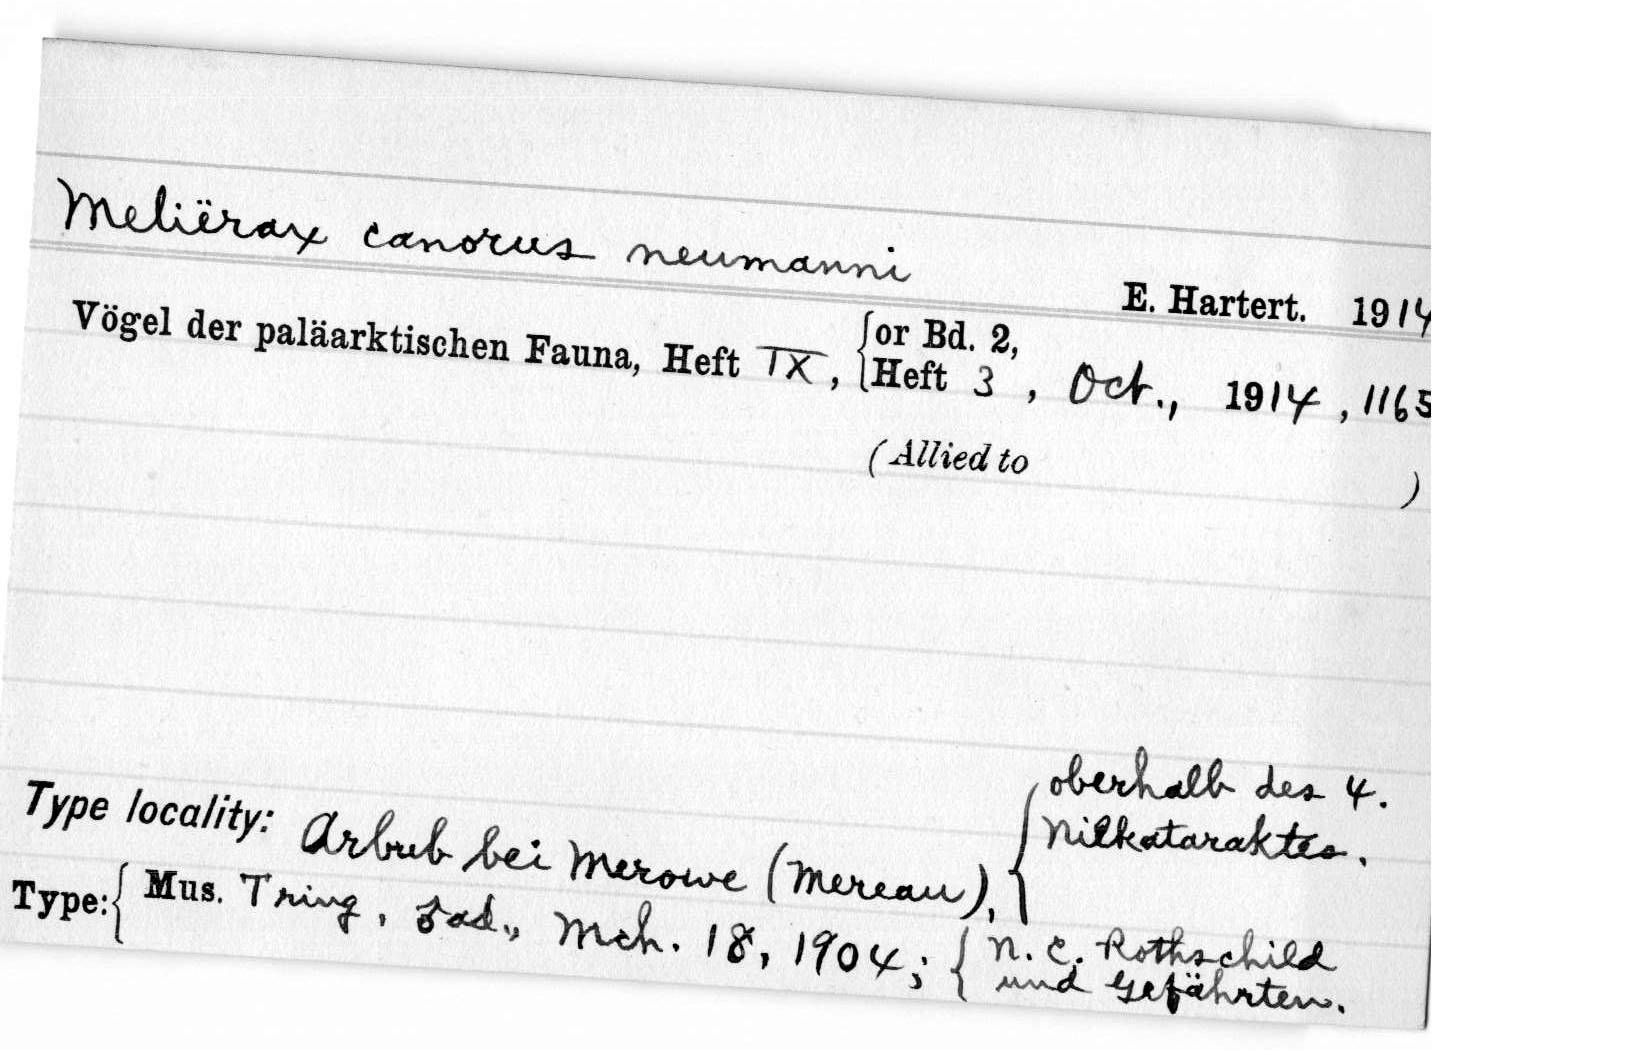 Meliërax canorus neumanni
E. Hartert. 1914
Vögel der paläarktischen Fauna, Heft IX, {or Bd. 2,
{Heft 3, Oct., 1914, 1165
(Allied to )
oberhalb des 4.
Nilkataraktes.
Type locality: Arbub bei Merowe (Mereau),
Type: { Mus. Tring, ad., Mch. 18, 1904; { N. C. Rothschild
und Gefährten.